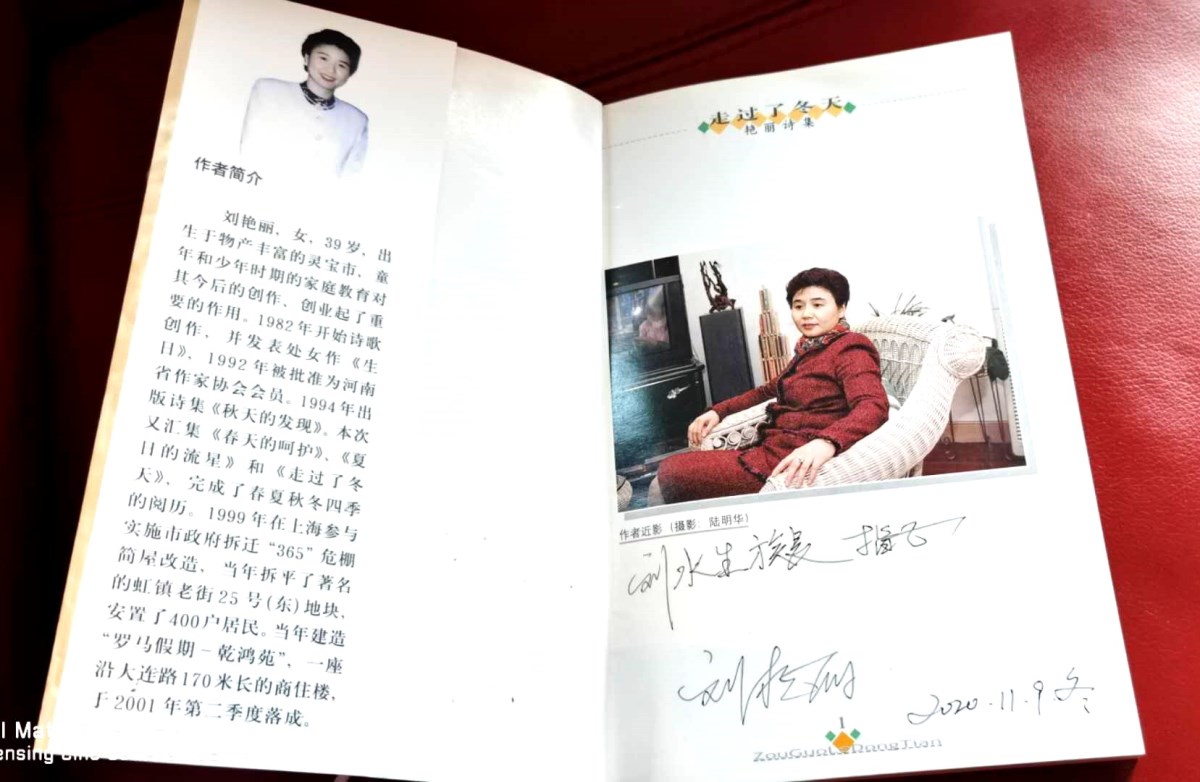 作者简介
刘艳丽，女，39岁，出
生于物产丰富的灵宝市，童
年和少年时期的家庭教育对
其今后的创作，创业起了重
要的作用。1982年开始诗歌
创作，并发表处女作《生
日》，1992年被批准为河南
省作家协会会员。1994年出
版诗集《秋天的发现》。本次
又汇集《春天的呵护》、《夏
日的流星》和《走过了冬
天》，完成了春夏秋冬四季
的阅历。1999年在上海参与
实施市政府拆迁“365”危棚
简屋改造，当年拆平了著名
的虹镇老街25号(东)地块，
安置了400户居民。当年建造
“罗马假期－乾鸿苑”，一座
沿大连路170米长的商住楼，
于2001年第二季度落成。
走过了冬天
艳丽诗集
作者近影（摄影：陆明华）
刘水生族长 指正
刘艳丽
2020.11.9冬
1
ZouGuoLeDongTian